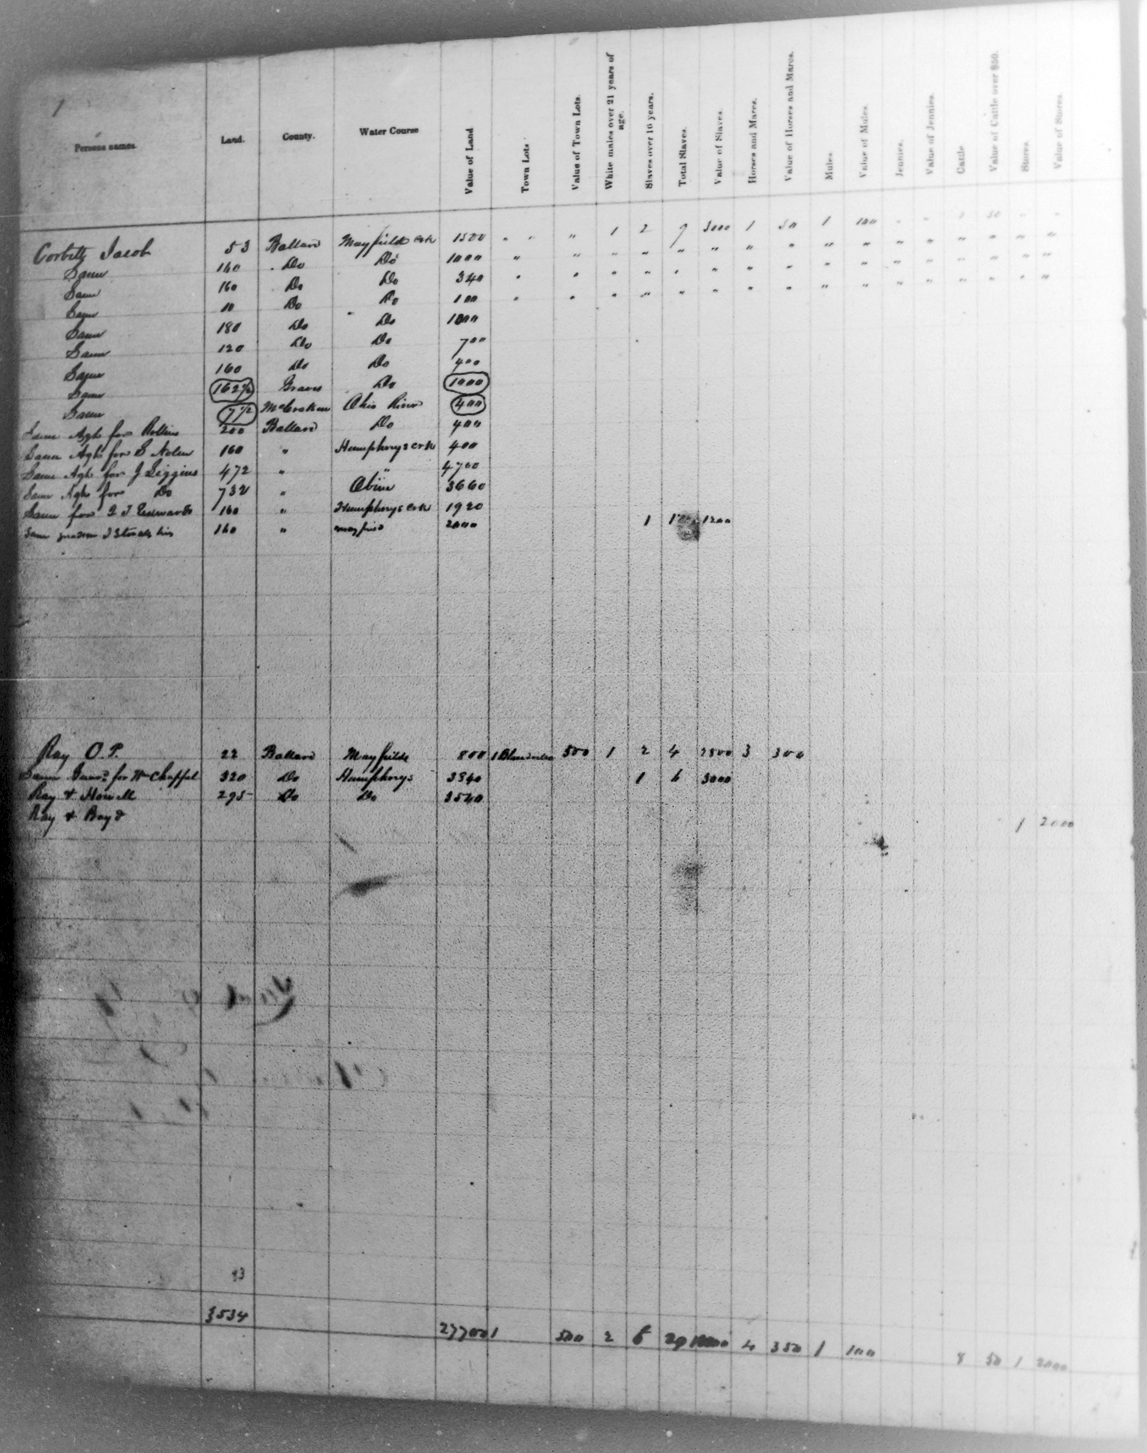 1
Persons names. Land. County. Water Course Value of Land Town Lots Value of Town Lots. White males over 21 years of age. Slaves over 16 years. Total Slaves. Value of Slaves. Horses and Mares. Value of Horses and Mares. Mules Value of Mules. Jennies. Value of Jennies. Cattle Value of Cattle over $50. Stores. Value of Stores.
Corbett Jacob 53 Ballard Mayfield Crk 1500 " " " 1 2 9 3000 1 50 1 100 " " 50 " "
Same 160 Do Do 1000
Same 160 Do Do 340
Same 10 Do Do 100
Same 180 Do Do
Same 120 Do Do 700
Same 160 Do Do 400
Same 162½ Graves Do 1000
Same 7½ McCracken Ohio River 400
Same Agt for Rollins 200 Ballard Do 400
Same Agt for S Nolen 160 " Humphrys Crk 400
Same Agt for J Liggins 472 " " 4700
Same Agt for Do 732 " 3660
Same for Edwards 160 " Humphrys Crk 1920
Same 160 " 2000 1 1200
Ray O. P. 22 Ballard Mayfield 800 1 500 1 2 4 2500 3 300
Same for Wm Chappel 320 Do Humphrys 3840 1 6 3000
Ray & Howell 295 Do Do 3540
Ray & Boyd 1 2000
93
3534 27700 1 500 2 6 29 4 350 1 100 8 50 1 2000